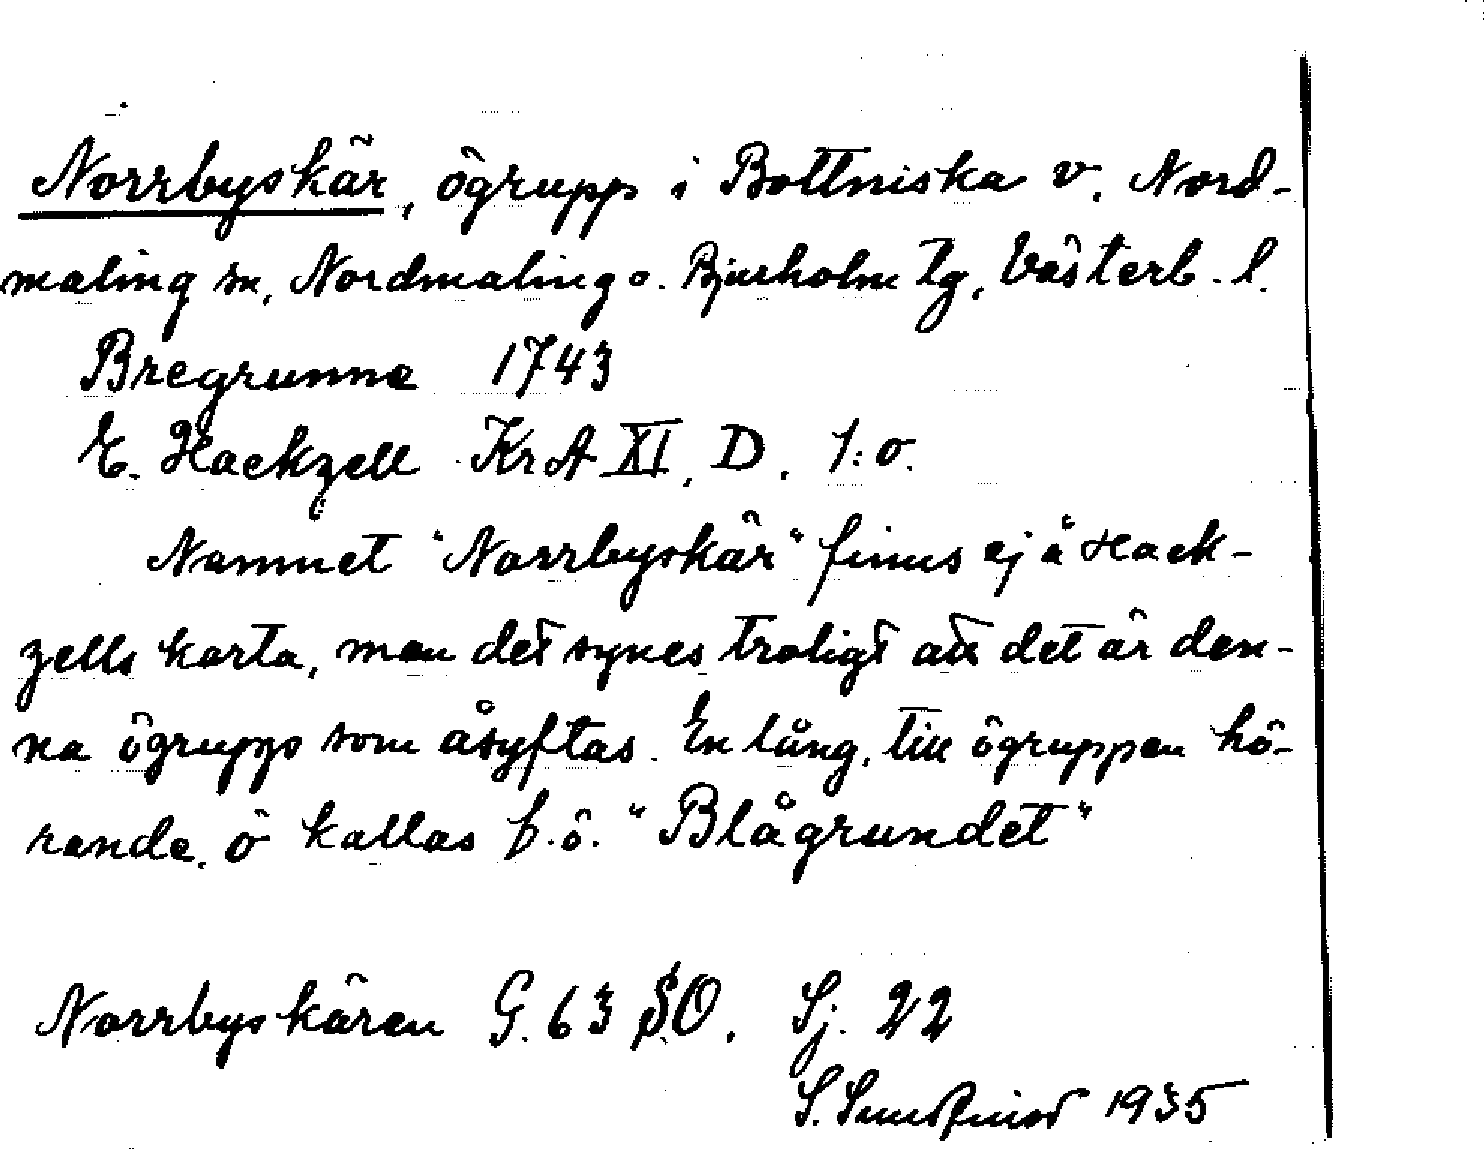 Norrbyskär, ögrupp i Bottniska v. Nord-
maling sn, Nordmaling o. Bjurholm tg, Västerb. l.
Bregrunne 1743
E. Hackzell KrA XI, D. 1:o.
Namnet "Norrbyskär" finns ej å Hack-
zells karta, men det synes troligt att det är den-
na ögrupp som åsyftas. En lång, till ögruppen hö-
rande, ö kallas f.ö. "Blågrundet"
Norrbyskären G. 63 SO. Sj. 22
S. 1935